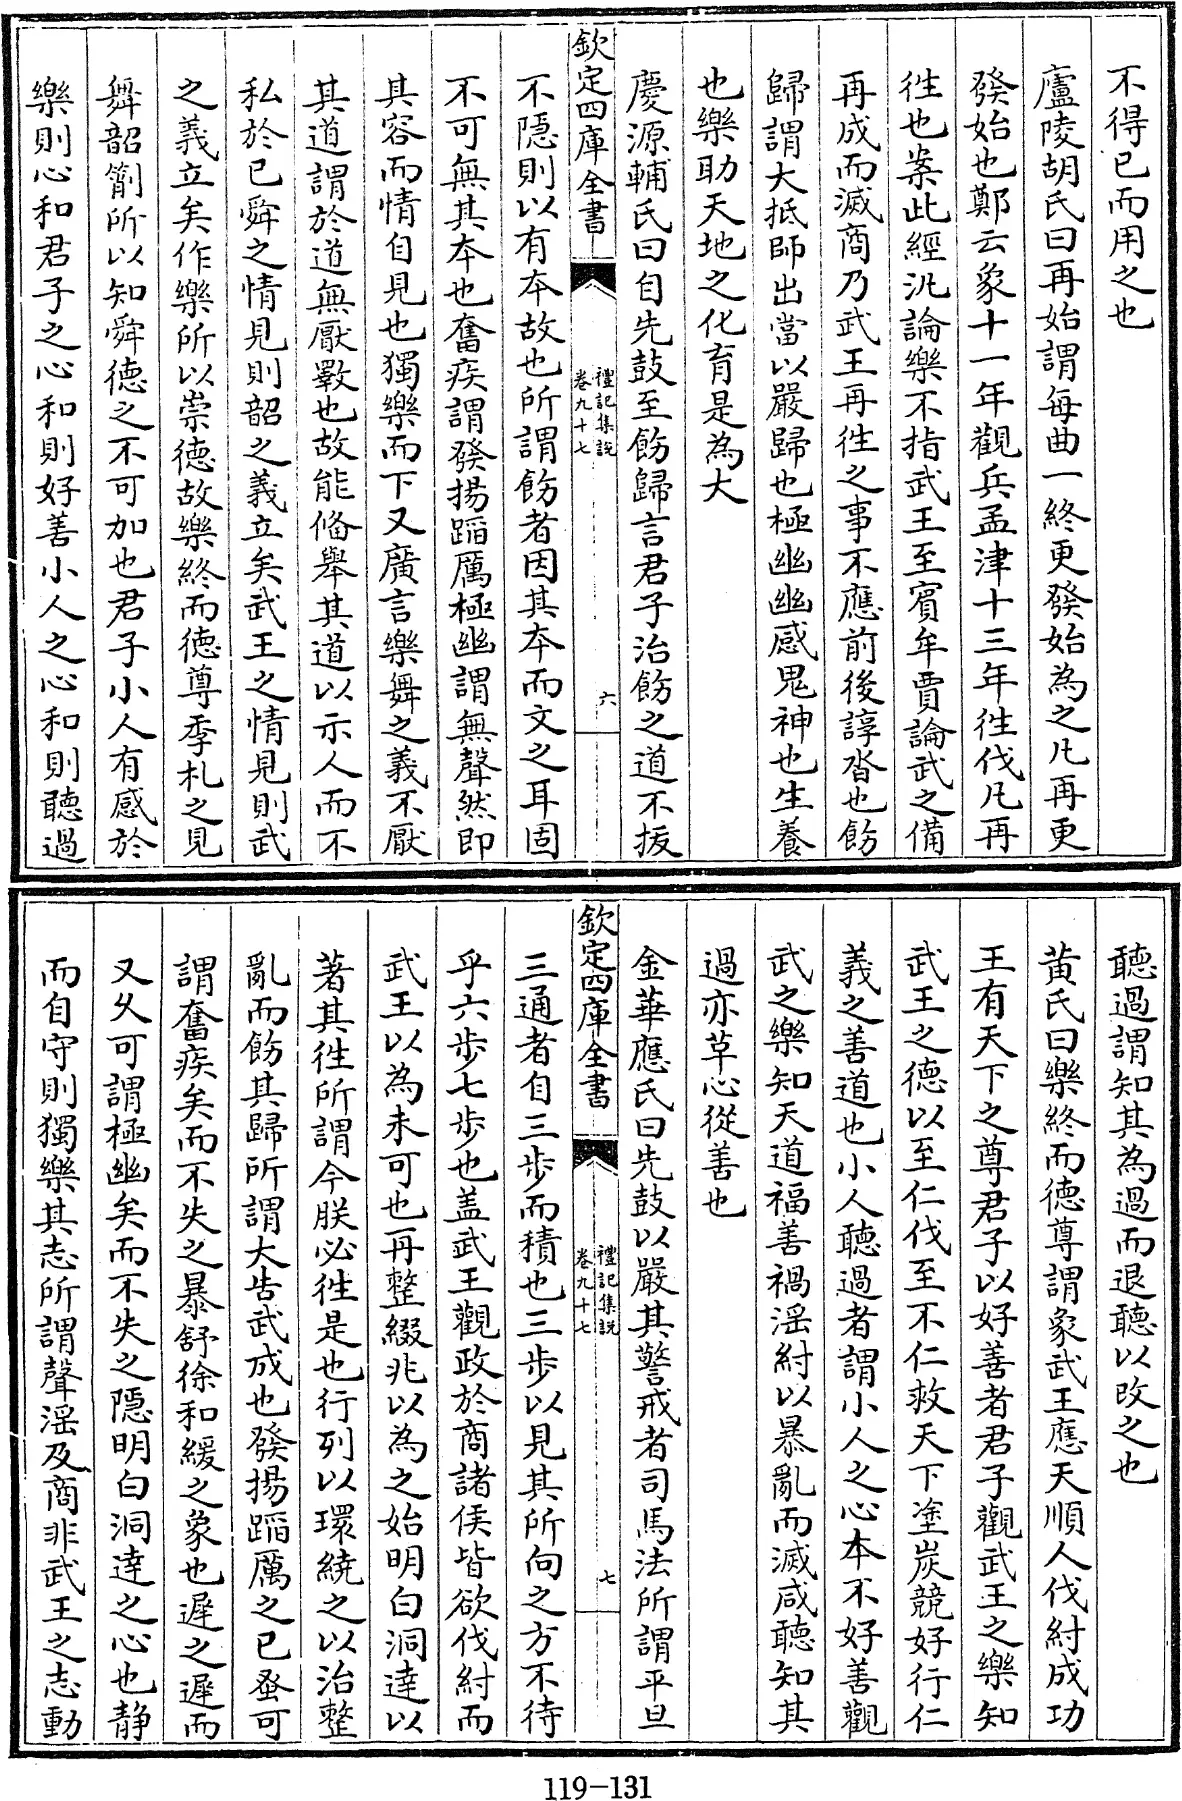 不得已而用之也
廬陵胡氏曰再始謂每曲一終更發始為之凡再更
發始也鄭云象十一年觀兵孟津十三年徃伐凡再
徃也案此經汎論樂不指武王至賓牟賈論武之備
再成而滅商乃武王再徃之事不應前後諄沓也飭
歸謂大抵師出當以嚴歸也極幽幽感鬼神也生養
也樂助天地之化育是為大
慶源輔氏曰自先鼓至飭歸言君子治飭之道不拔
欽定四庫全書
禮記集說
卷九十七
六
不隱則以有本故也所謂飭者因其本而文之耳固
不可無其本也奮疾謂發揚蹈厲極幽謂無聲然即
其容而情自見也獨樂而下又廣言樂舞之義不厭
其道謂於道無厭斁也故能備舉其道以示人而不
私於已舜之情見則韶之義立矣武王之情見則武
之義立矣作樂所以崇德故樂終而德尊季札之見
舞韶箾所以知舜德之不可加也君子小人有感於
樂則心和君子之心和則好善小人之心和則聽過
聽過謂知其為過而退聽以改之也
黃氏曰樂終而德尊謂象武王應天順人伐紂成功
王有天下之尊君子以好善者君子觀武王之樂知
武王之德以至仁伐至不仁救天下塗炭競好行仁
義之善道也小人聽過者謂小人之心本不好善觀
武之樂知天道福善禍淫紂以暴亂而滅咸聽知其
過亦草心從善也
金華應氏曰先鼓以嚴其警戒者司馬法所謂平旦
欽定四庫全書
禮記集說
卷九十七
七
三通者自三歩而積也三歩以見其所向之方不待
乎六歩七歩也盖武王觀政於商諸侯皆欲伐紂而
武王以為未可也再整綴兆以為之始明白洞達以
著其徃所謂今朕必徃是也行列以環繞之以治整
亂而飭其歸所謂大告武成也發揚蹈厲之已蚤可
謂奮疾矣而不失之暴舒徐和緩之象也遲之遲而
又久可謂極幽矣而不失之隱明白洞達之心也静
而自守則獨樂其志所謂聲淫及商非武王之志動
119-131